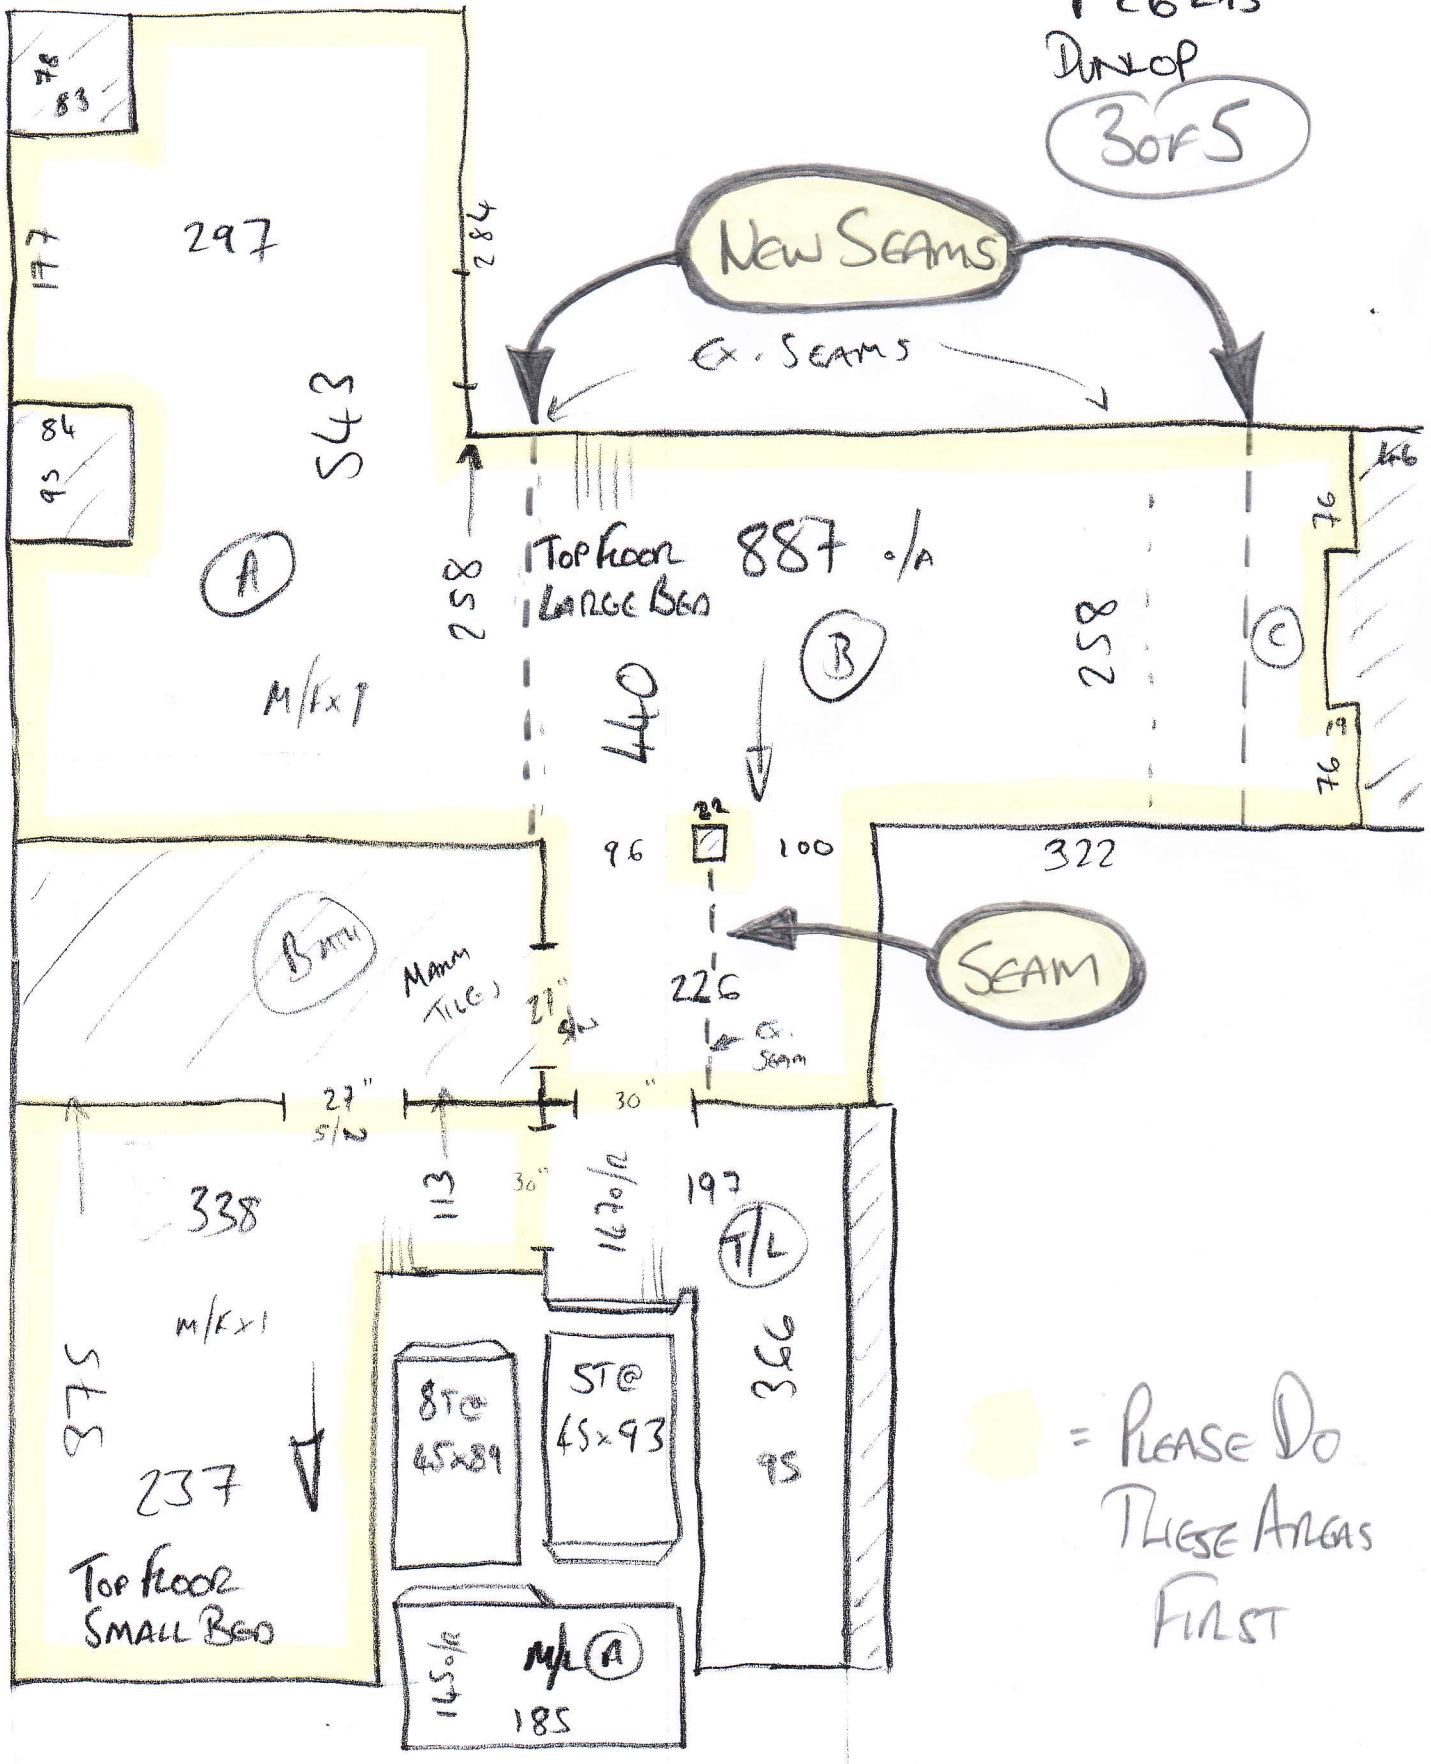 DUNLOP
3 OF 5
78
83
297
177
284
NEW SEAMS
EX. SEAMS
543
84
95
46
76
A
258
TOP FLOOR
LARGE BED
887 O/A
B
258
C
M/E x 1
440
76
22
96
100
322
BATH
MARM
TILES
27"
S/N
226
SEAM
EX.
SEAM
27"
S/N
30"
338
113
30"
1670/R
197
T/L
M/E x 1
375
366
8T@
45x89
5T@
45x93
95
237
TOP FLOOR
SMALL BED
1450/R
M/L A
185
= PLEASE DO
THESE AREAS
FIRST